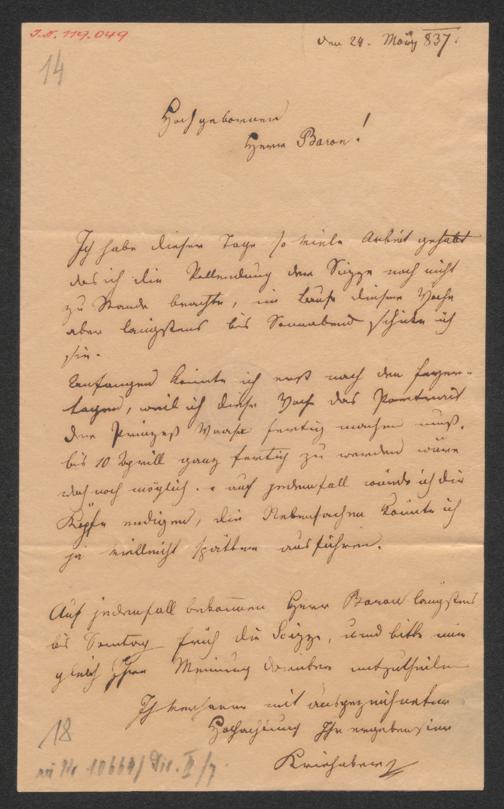 I.N. 119.049
den 24. März 837.
14
Hochgebornner
Herr Baron!
Ich habe dieser Tage so viele Arbeit gehabt
das ich die Vollendung der Skizze noch nicht
zu Stande brachte, im Laufe dieser Woche
aber längstens bis Sonnabend schicke ich
sie.
Anfangen könnte ich erst nach den Feyer-
tagen, weil ich diese Woche das Portrait
der Prinzeß Wasa fertig machen muß.
bis 10 Aprill ganz fertich zu werden wäre
doch noch möglich. auf jedenfall würde ich die
Köpfe endigen, die Nebensachen könnte ich
ja vielleicht später ausführen.
Auf jedenfall bekommen Herr Baron längstens
bis Sontag früh die Scizze, und bitte mir
gleich Ihre Meinung darüber mitzutheilen
Ich verharre mit ausgezeichneter
Hochachtung Ihr ergebenster
Kriehuber
18
zu Nr. 10664/ Dir. II/7.